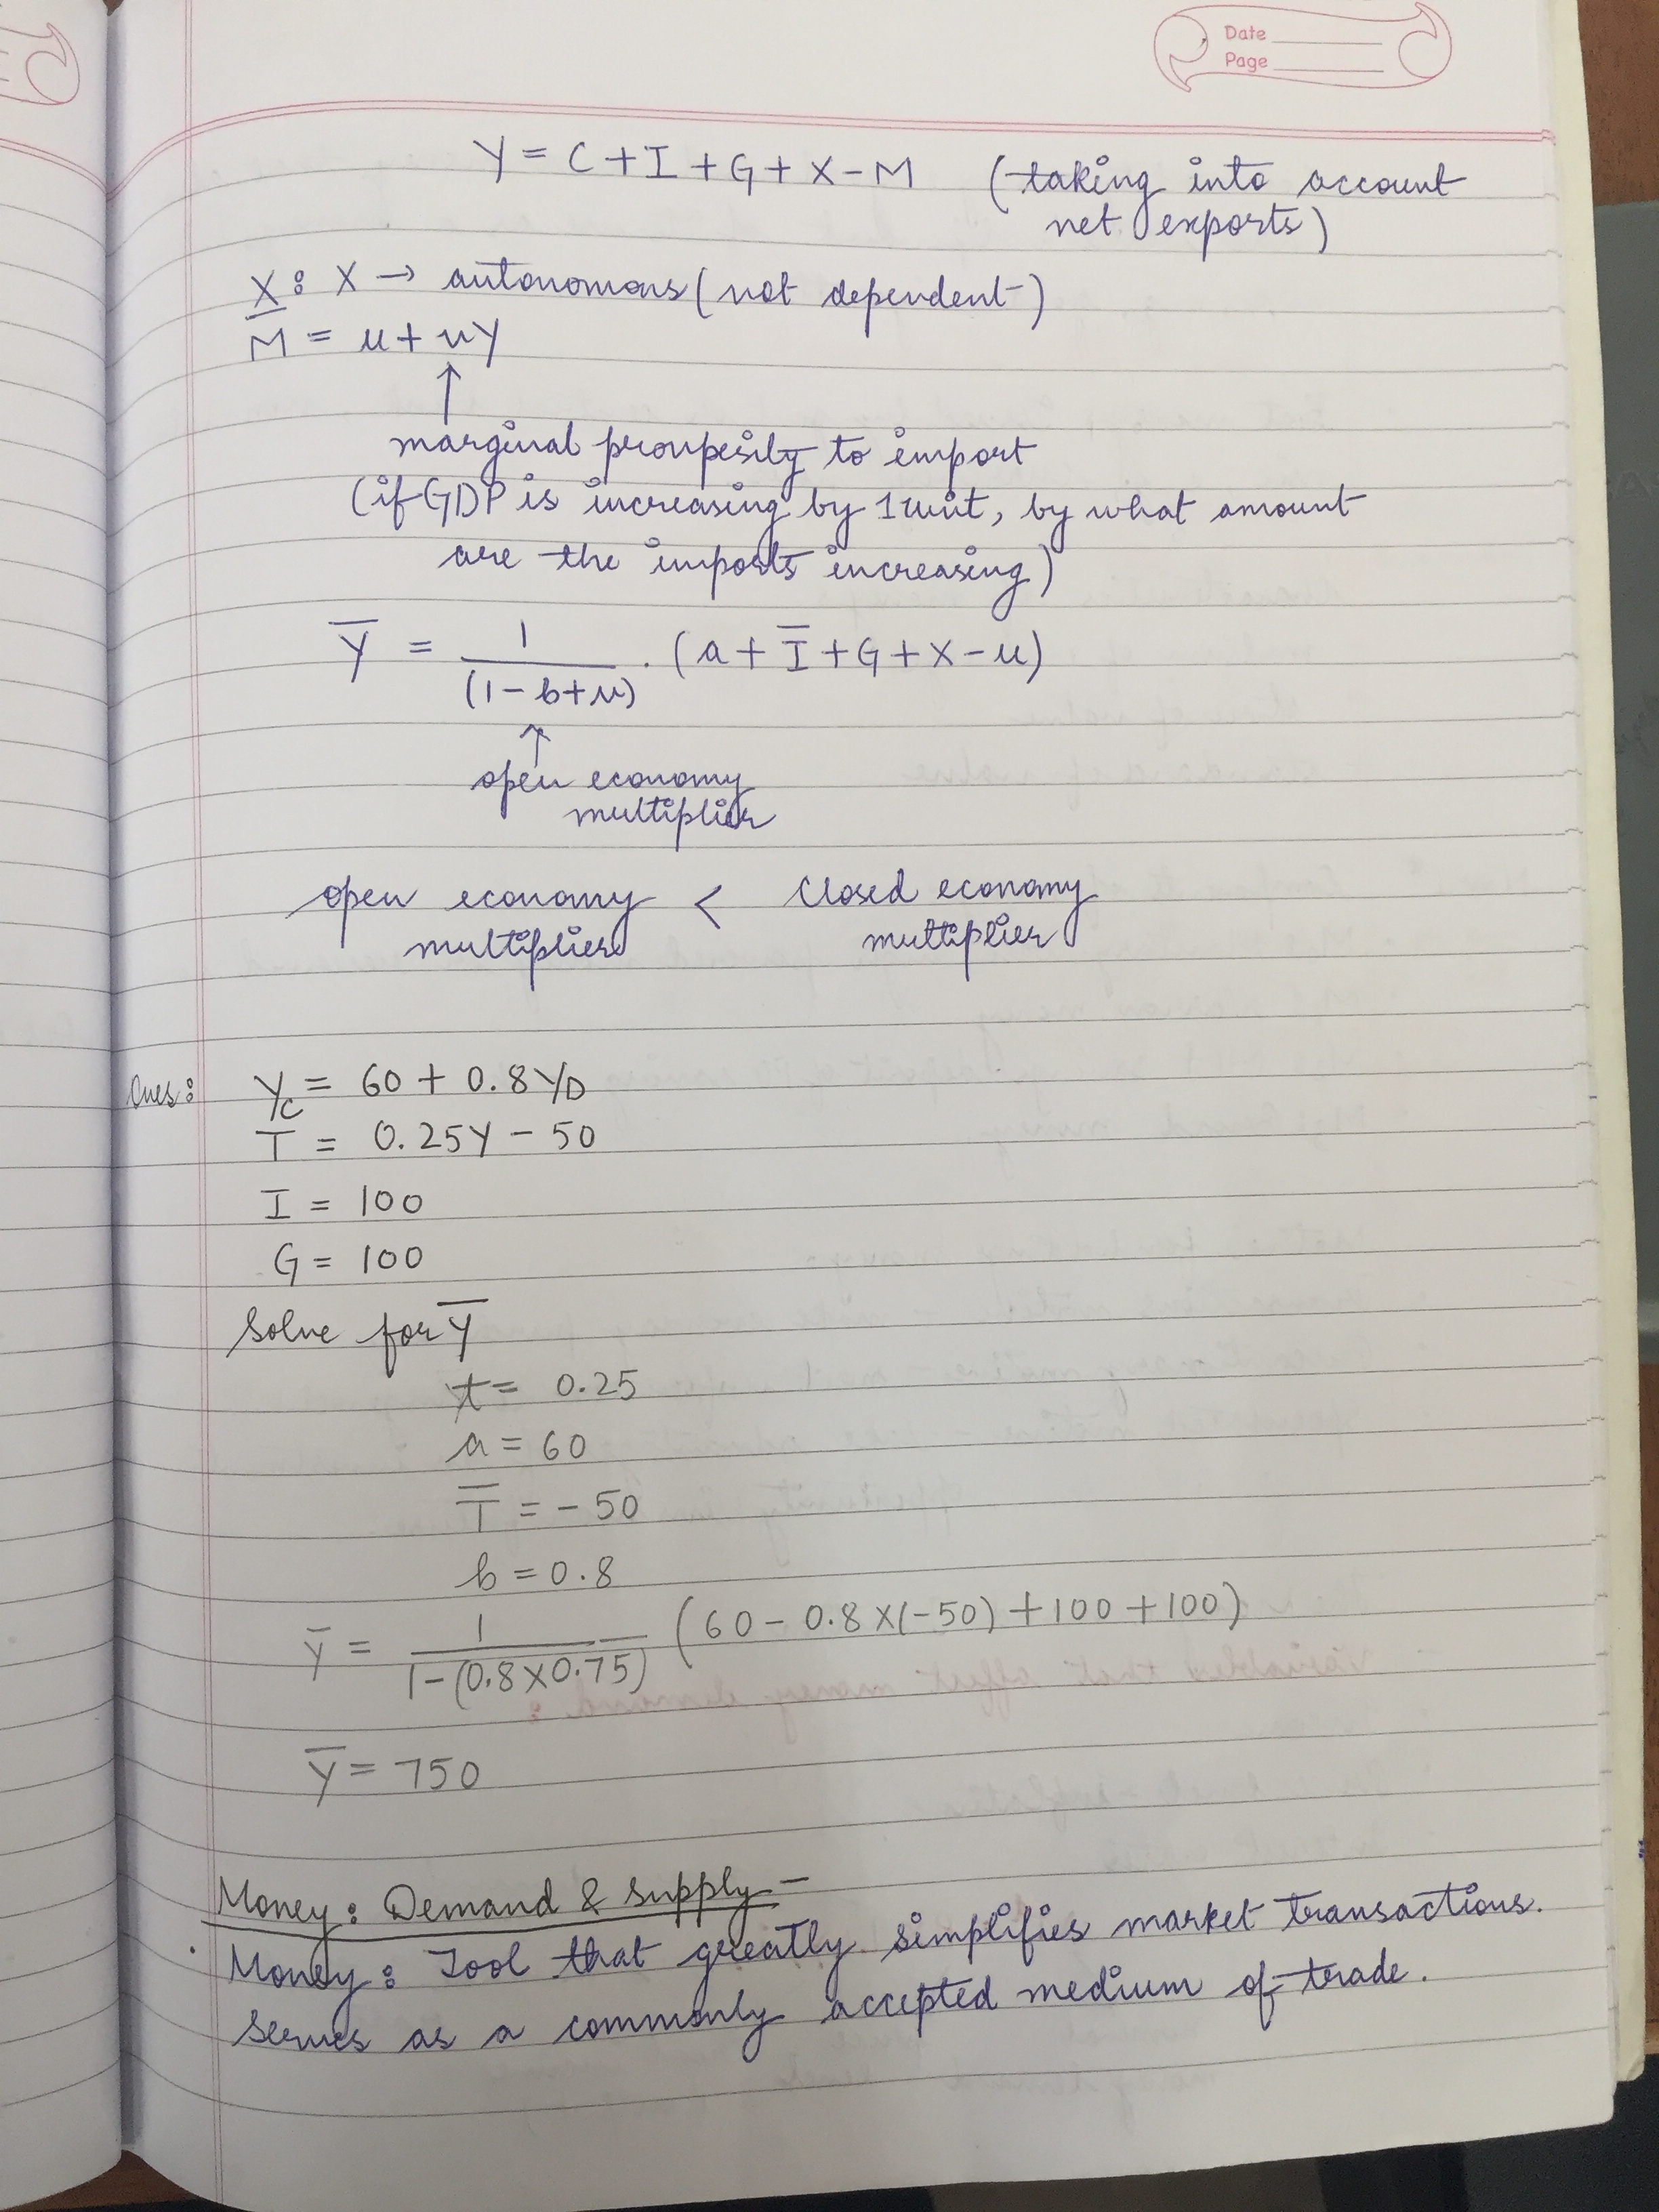 Date
Page
Y = C + I + G + X - M (taking into account
net exports)
X: X → autonomous (not dependent)
M = u + vY
↑
marginal proupesity to import
(if GDP is increasing by 1 unit, by what amount
are the imports increasing)
Y̅ = 1/(1-b+v) . (a + I̅ + G + X - u)
↑
open economy
multiplier
open economy < Closed economy
multiplier multiplier
Ques: Yc = 60 + 0.8YD
T = 0.25Y - 50
I = 100
G = 100
Solve for Y̅
t = 0.25
a = 60
T̅ = -50
b = 0.8
Y̅ = 1/1-(0.8×0.75) (60 - 0.8×(-50) + 100 + 100)
Y̅ = 750
Money: Demand & Supply -
. Money: Tool that greatly simplifies market transactions.
Serves as a commonly accepted medium of trade.